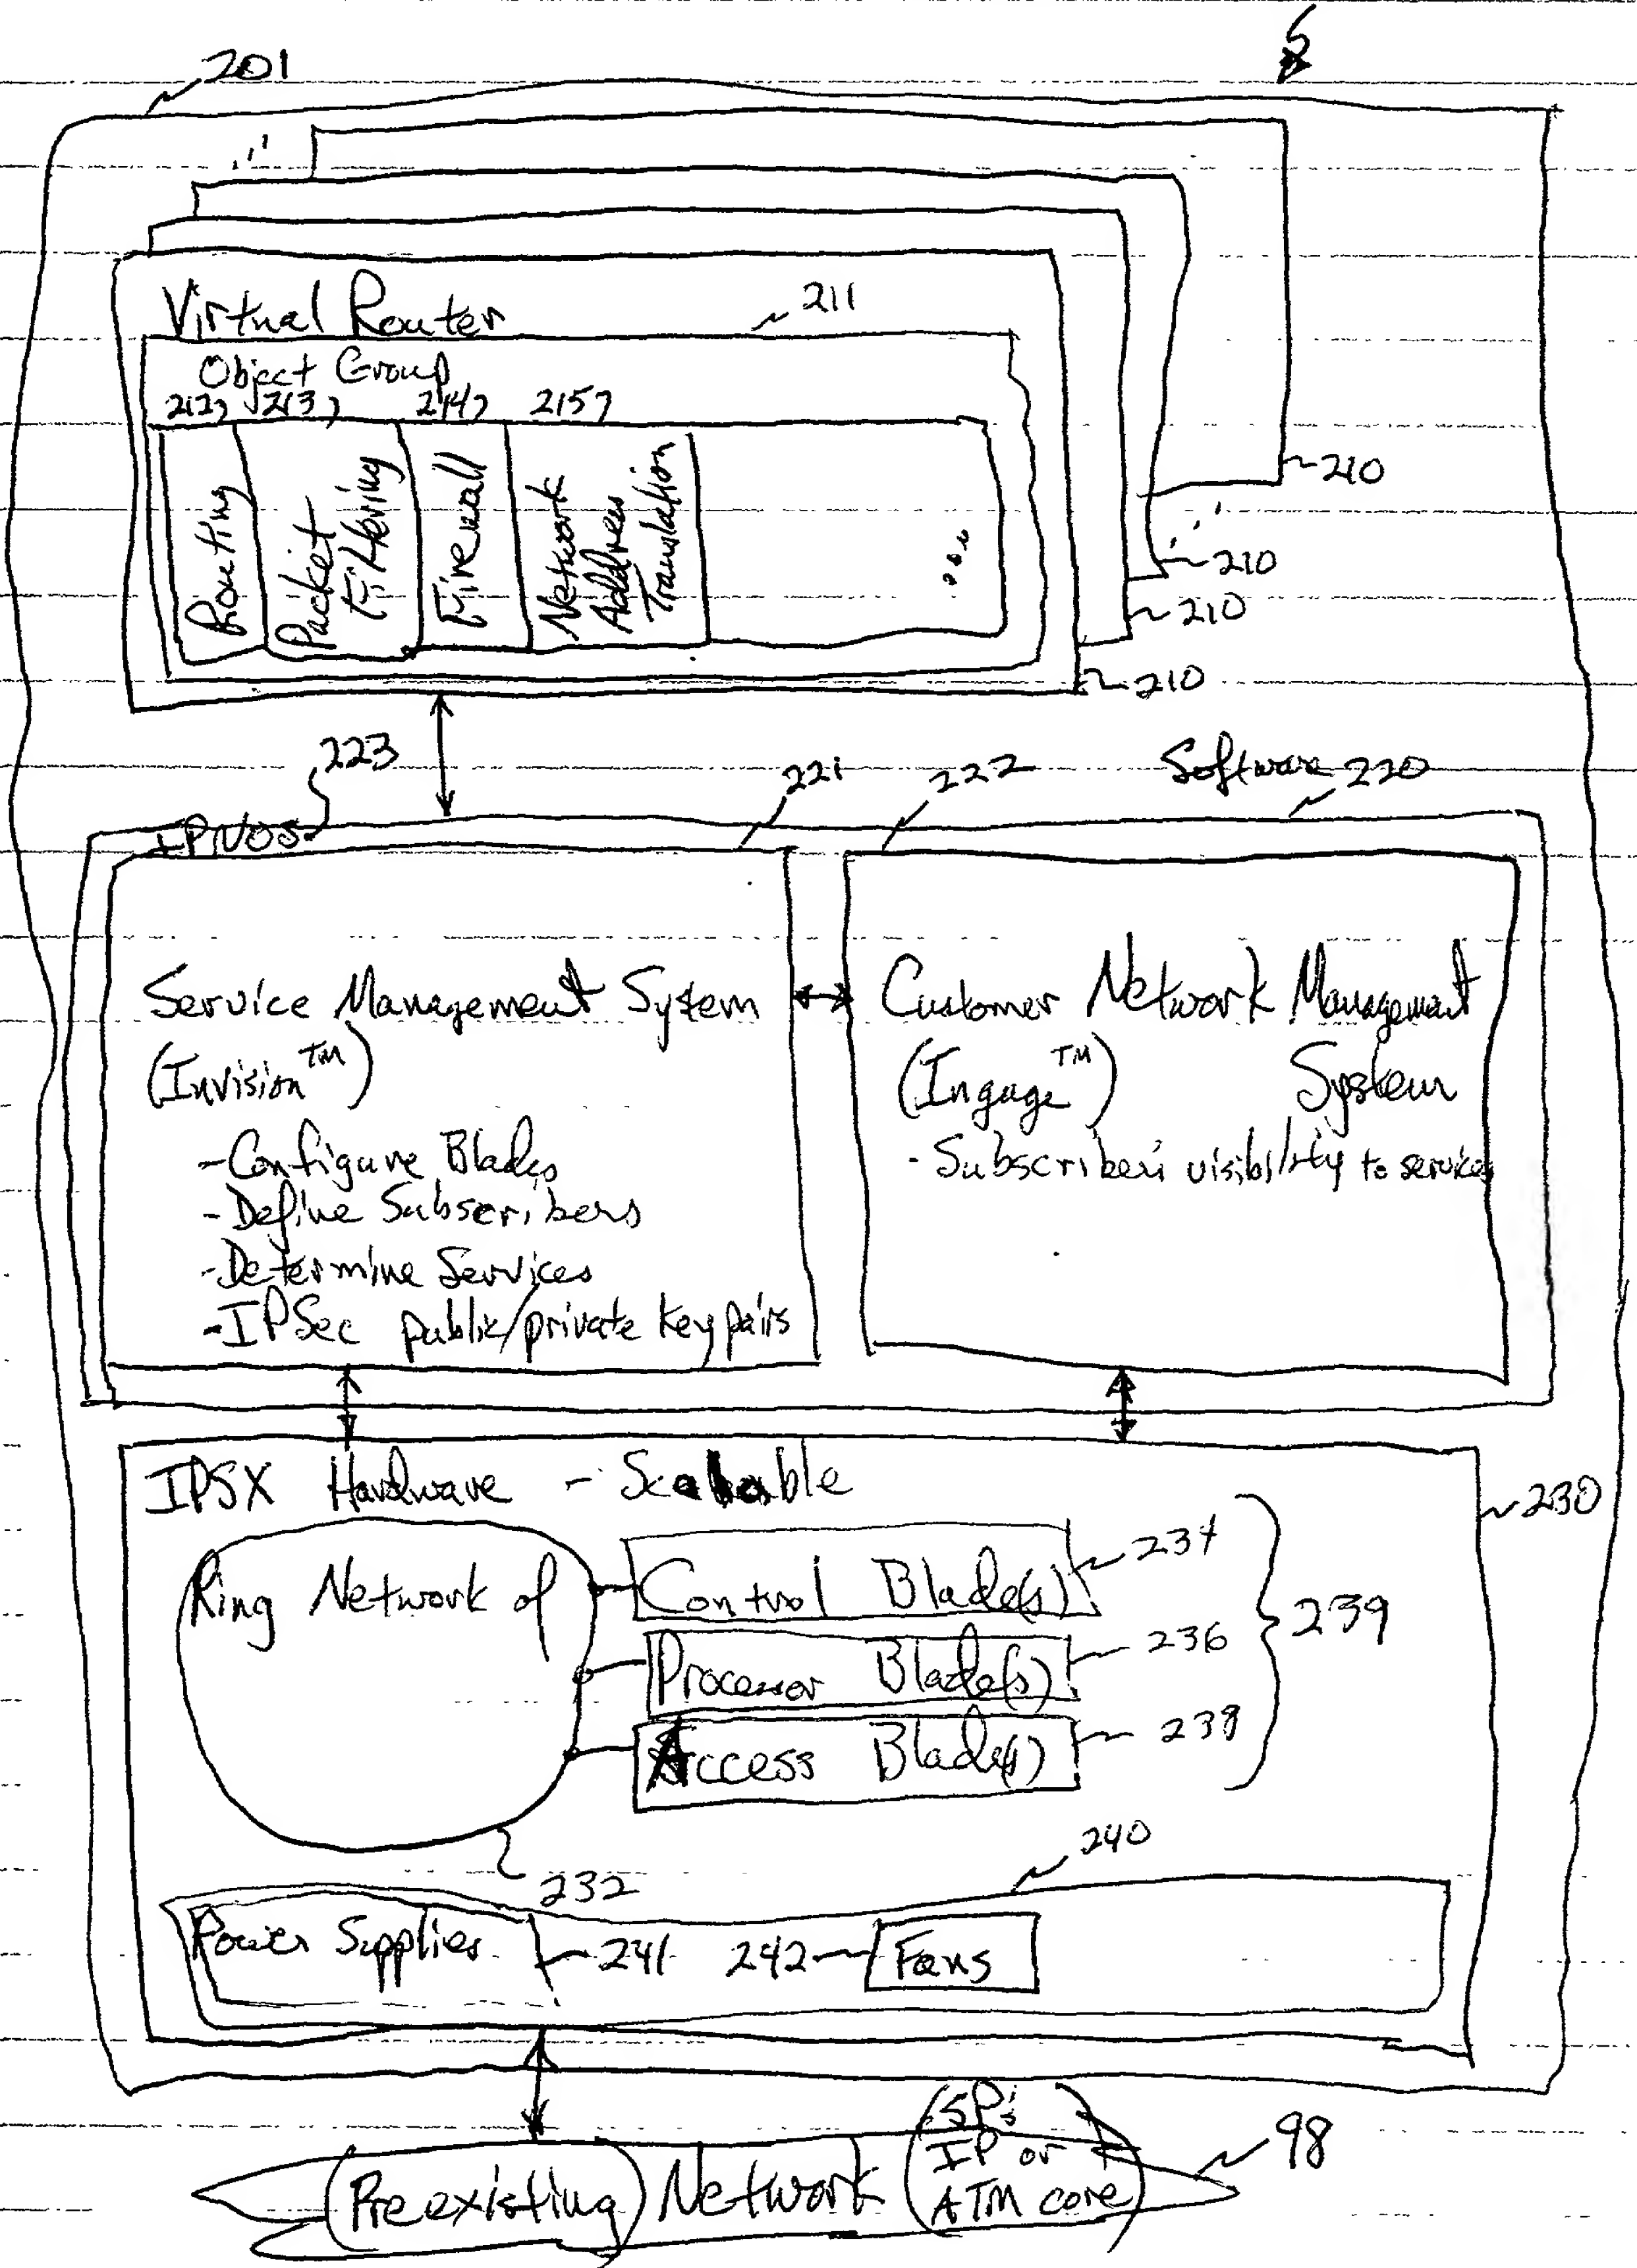 201
210
210
210
210
Virtual Router
211
Object Group
212 213 214 215
Routing
Packet Filtering
Firewall
Network Address Translation
...
223
221
222
Software 220
IPNOS
Service Management System
(Invision™)
-Configure Blades
-Define Subscribers
-Determine Services
-IPSec public/private key pairs
Customer Network Management
(Ingage™) System
- Subscriber's visibility to services
IPSX Hardware - Scalable
230
Ring Network of
Control Blade(s)
234
Processor Blade(s)
236
Access Blade(s)
238
239
232
240
Power Supplies
241
242
Fans
(Preexisting) Network (SP's
IP or
ATM core)
98